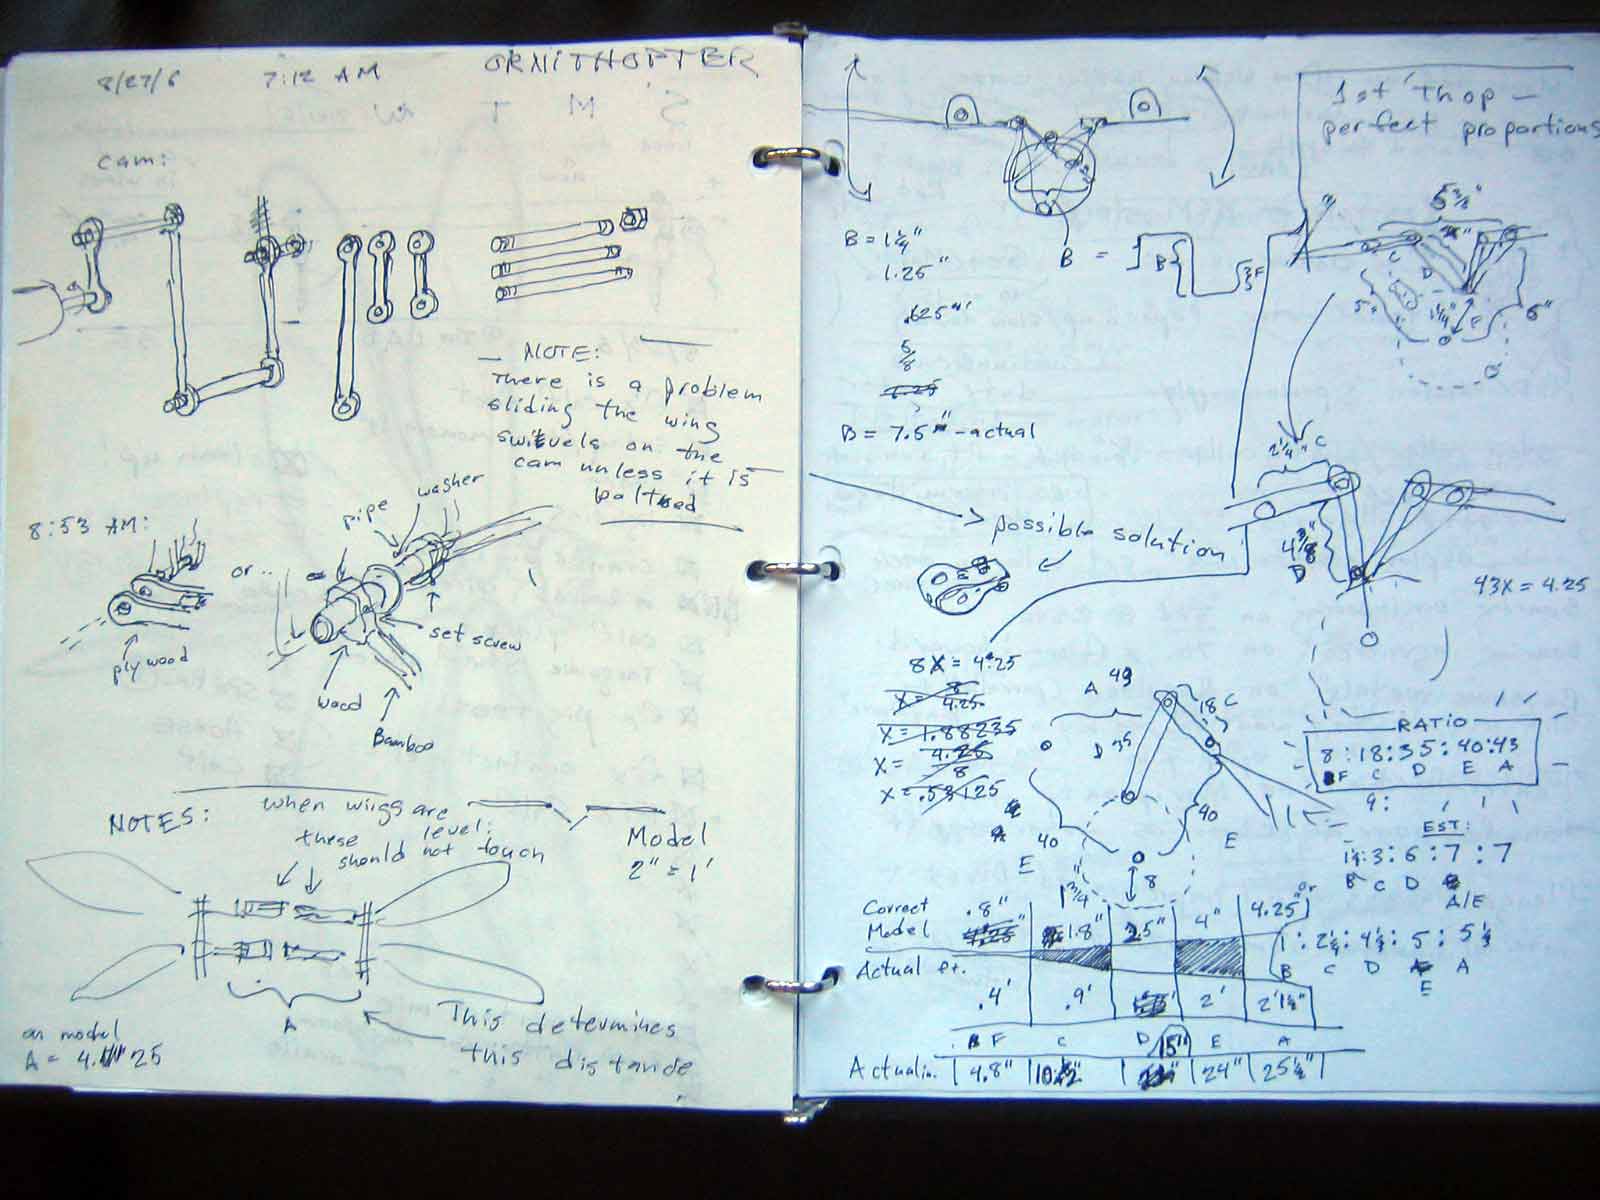 8/27/6 7:12 AM ORNITHOPTER
S M T W
cam:
NOTE:
There is a problem
sliding the wing
swivels on the
cam unless it is
bolted
8:53 AM:
or..
pipe
washer
set screw
plywood
wood
Bamboo
NOTES: when wings are
level:
these
should not touch
Model
2" = 1'
A
This determines
this distance
on model
A = 4. 25
1st 'Thop -
perfect proportions
B = 1¼"
1.25"
.625"
5/8
1.25
B = 7.5" - actual
B = B F
5⅜"
C
D
5"
1¼"
F
6"
possible solution
2¼" C
4⅜"
D
43X = 4.25
8X = 4.25
X = 8
4.25
X = 1.88235
X = 4.25
8
X = .53125
A 43
18 C
D 35
40
E
40
E
8
1¾"
RATIO
8:18:35:40:43
F C D E A
9:
EST:
1½:3:6:7:7
B C D
A/E
or
1:2¼:4⅓:5:5⅓
B C D E A
Correct
Model .8" 1.8" 2.5" 4" 4.25"
Actual ft.
.4' .9' 2' 2'1½"
F C D E A
15"
Actual in. 4.8" 24" 25½"